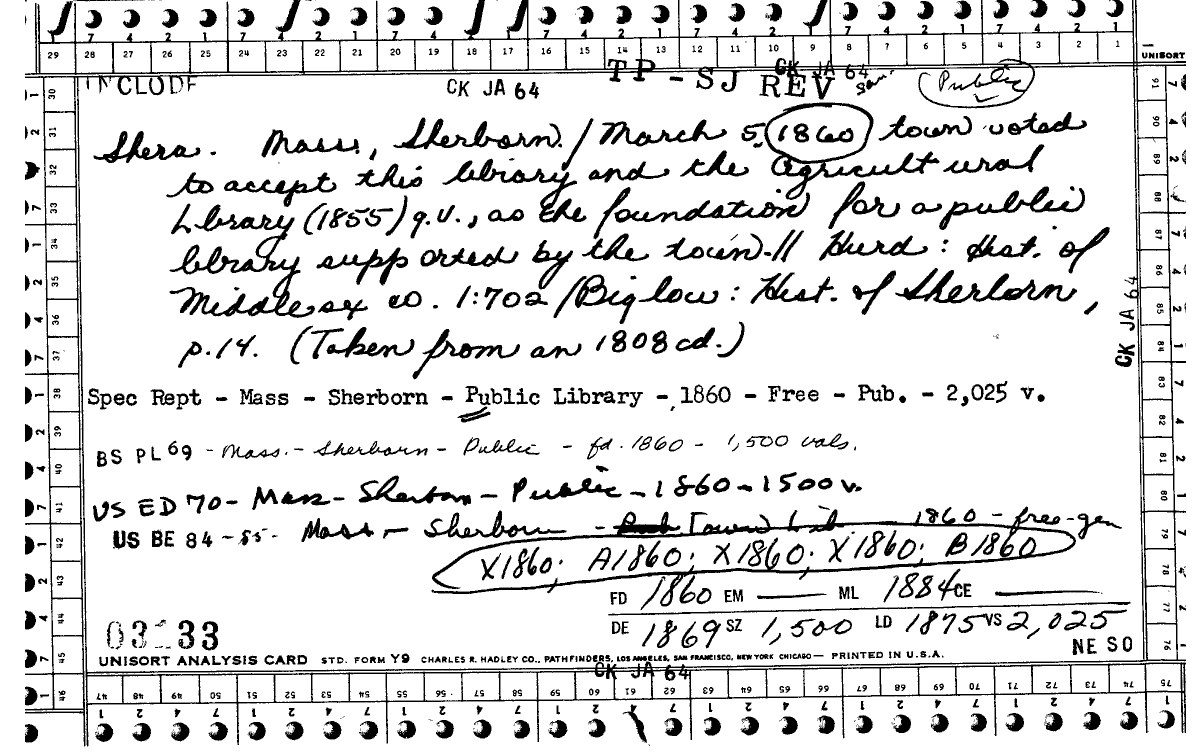 29 28 27 26 25 24 23 22 21 20 19 18 17 16 15 14 13 12 11 10 9 8 7 6 5 4 3 2 1 UNISORT
INCLUDE CK JA 64 TP-SJ REV CK JA 64 Public
Shera. Mass., Sherborn. / March 5, 1860 town voted
to accept this library and the Agricultural
Library (1855) q.v., as the foundation for a public
library supported by the town. // Hurd: Hist. of
Middlesex co. 1:702 / Biglow: Hist. of Sherborn,
p. 14. (Taken from an 1808 cd.)
CK JA 64
Spec Rept - Mass - Sherborn - Public Library - 1860 - Free - Pub. - 2,025 v.
BS PL 69 - Mass. - Sherborn - Public - fd. 1860 - 1,500 vols.
US ED 70 - Mass - Sherborn - Public - 1860 - 1500 v.
US BE 84-85 - Mass - Sherborn - Pub Town Lib - 1860 - free-gen
X1860; A1860; X1860; X1860; B1860
FD 1860 EM —— ML 1884 CE ——
DE 1869 SZ 1,500 LD 1875 VS 2,025
03 33 NE SO
UNISORT ANALYSIS CARD STD. FORM Y9 CHARLES R. HADLEY CO., PATHFINDERS, LOS ANGELES, SAN FRANCISCO, NEW YORK CHICAGO — PRINTED IN U.S.A.
CK JA 64
46 47 48 49 50 51 52 53 54 55 56 57 58 59 60 61 62 63 64 65 66 67 68 69 70 71 72 73 74 75